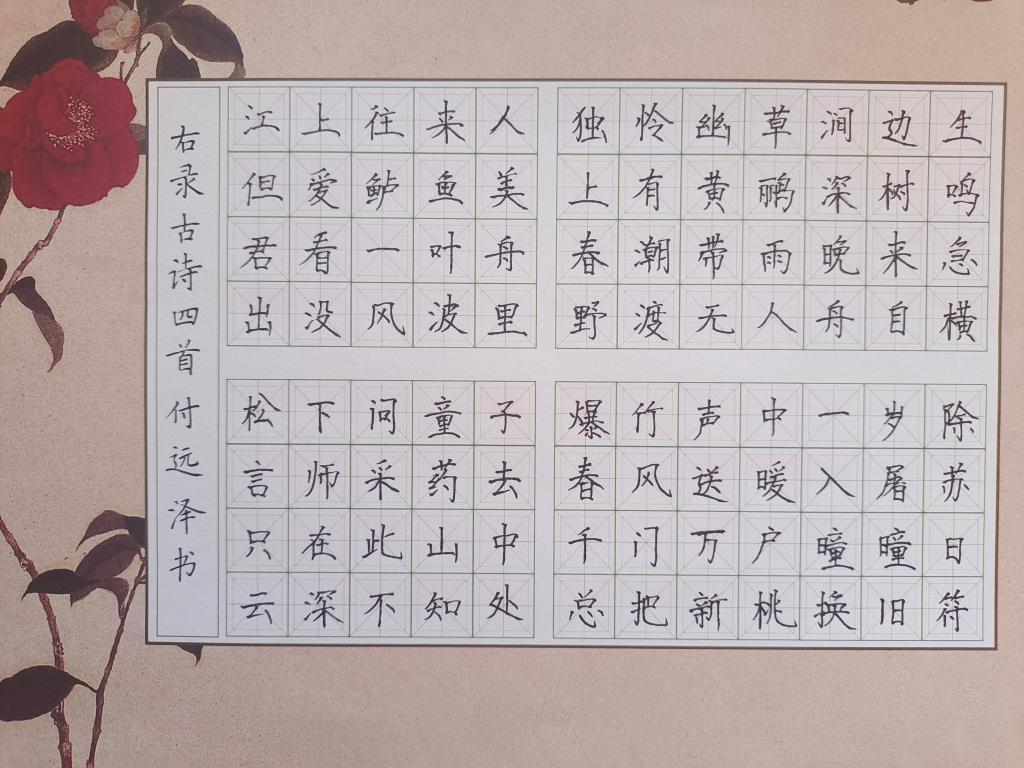 江上往来人
但爱鲈鱼美
君看一叶舟
出没风波里
独怜幽草涧边生
上有黄鹂深树鸣
春潮带雨晚来急
野渡无人舟自横
松下问童子
言师采药去
只在此山中
云深不知处
爆竹声中一岁除
春风送暖入屠苏
千门万户曈曈日
总把新桃换旧符
右录古诗四首付远泽书